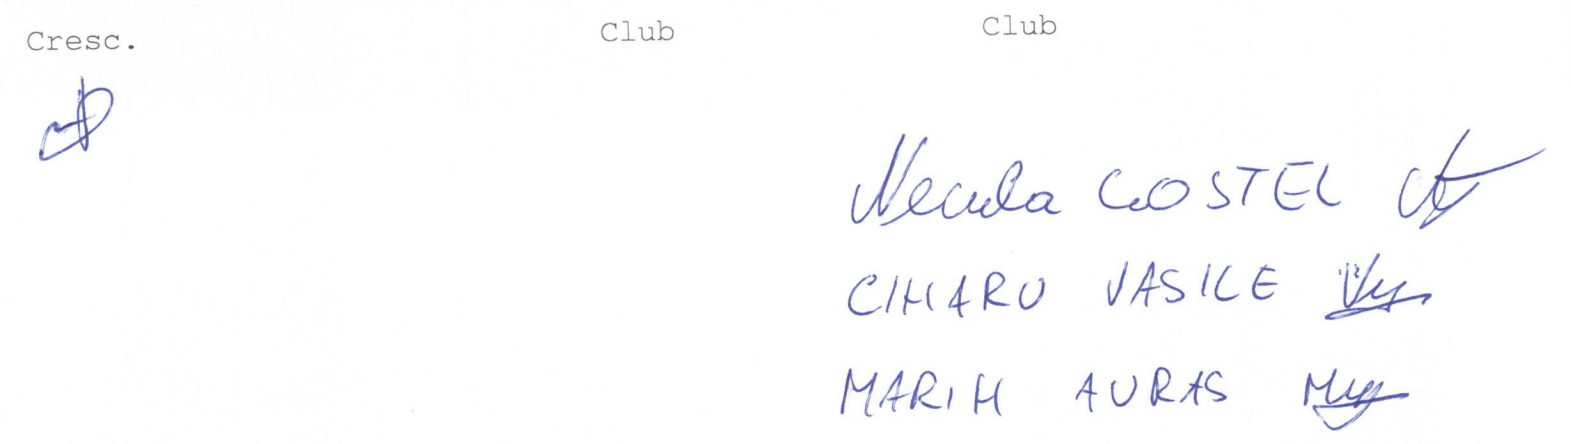 Cresc. Club Club
Necula COSTEL
CIHARU VASILE
MARIH AURAS